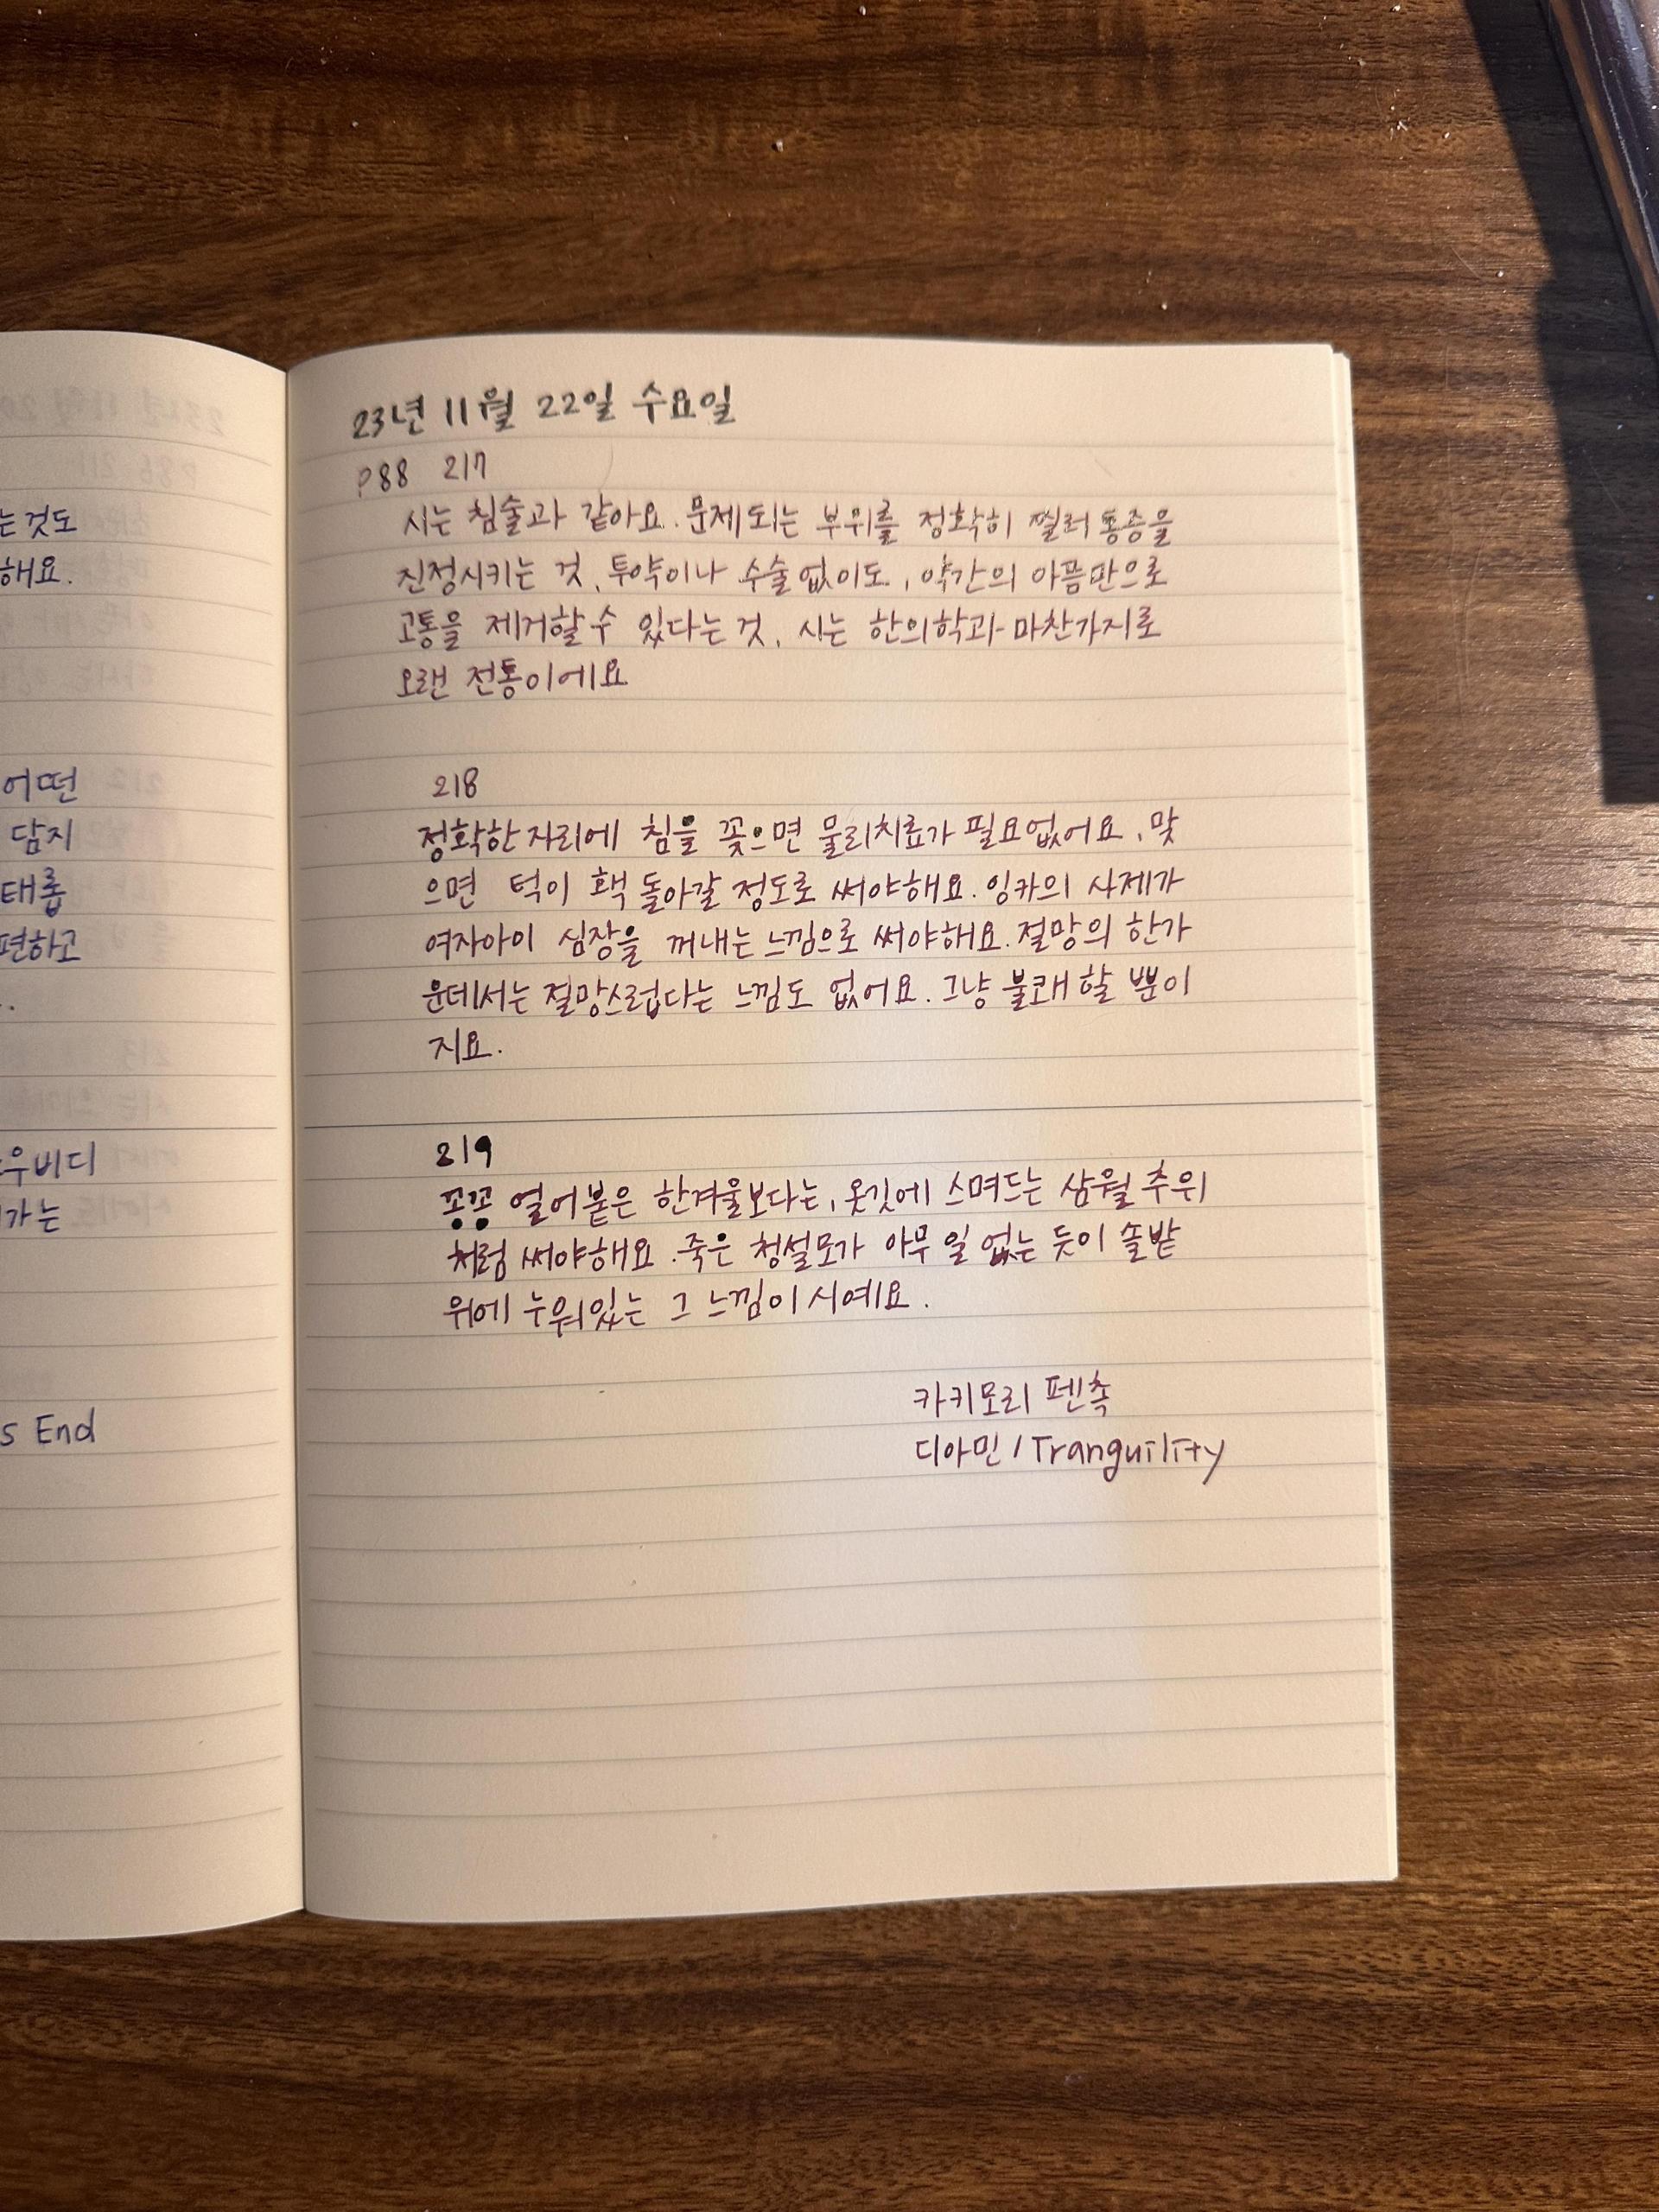 는것도
해요.
어떤
담지
태롭
편하고
우비디
가는
s End
23년 11월 22일 수요일
P88 217
시는 침술과 같아요. 문제되는 부위를 정확히 찔러 통증을
진정시키는 것, 투약이나 수술없이도, 약간의 아픔만으로
고통을 제거할수 있다는 것, 시는 한의학과 마찬가지로
오랜 전통이에요
218
정확한 자리에 침을 꽂으면 물리치료가 필요없어요, 맞
으면 턱이 홱 돌아갈 정도로 써야해요. 잉카의 사제가
여자아이 심장을 꺼내는 느낌으로 써야해요. 절망의 한가
운데서는 절망스럽다는 느낌도 없어요. 그냥 불쾌할 뿐이
지요.
219
꽁꽁 얼어붙은 한겨울보다는, 옷깃에 스며드는 삼월 추위
처럼 써야해요. 죽은 청설모가 아무 일 없는 듯이 솔밭
위에 누워있는 그 느낌이 시예요.
카키모리 펜촉
디아민 / Tranquility